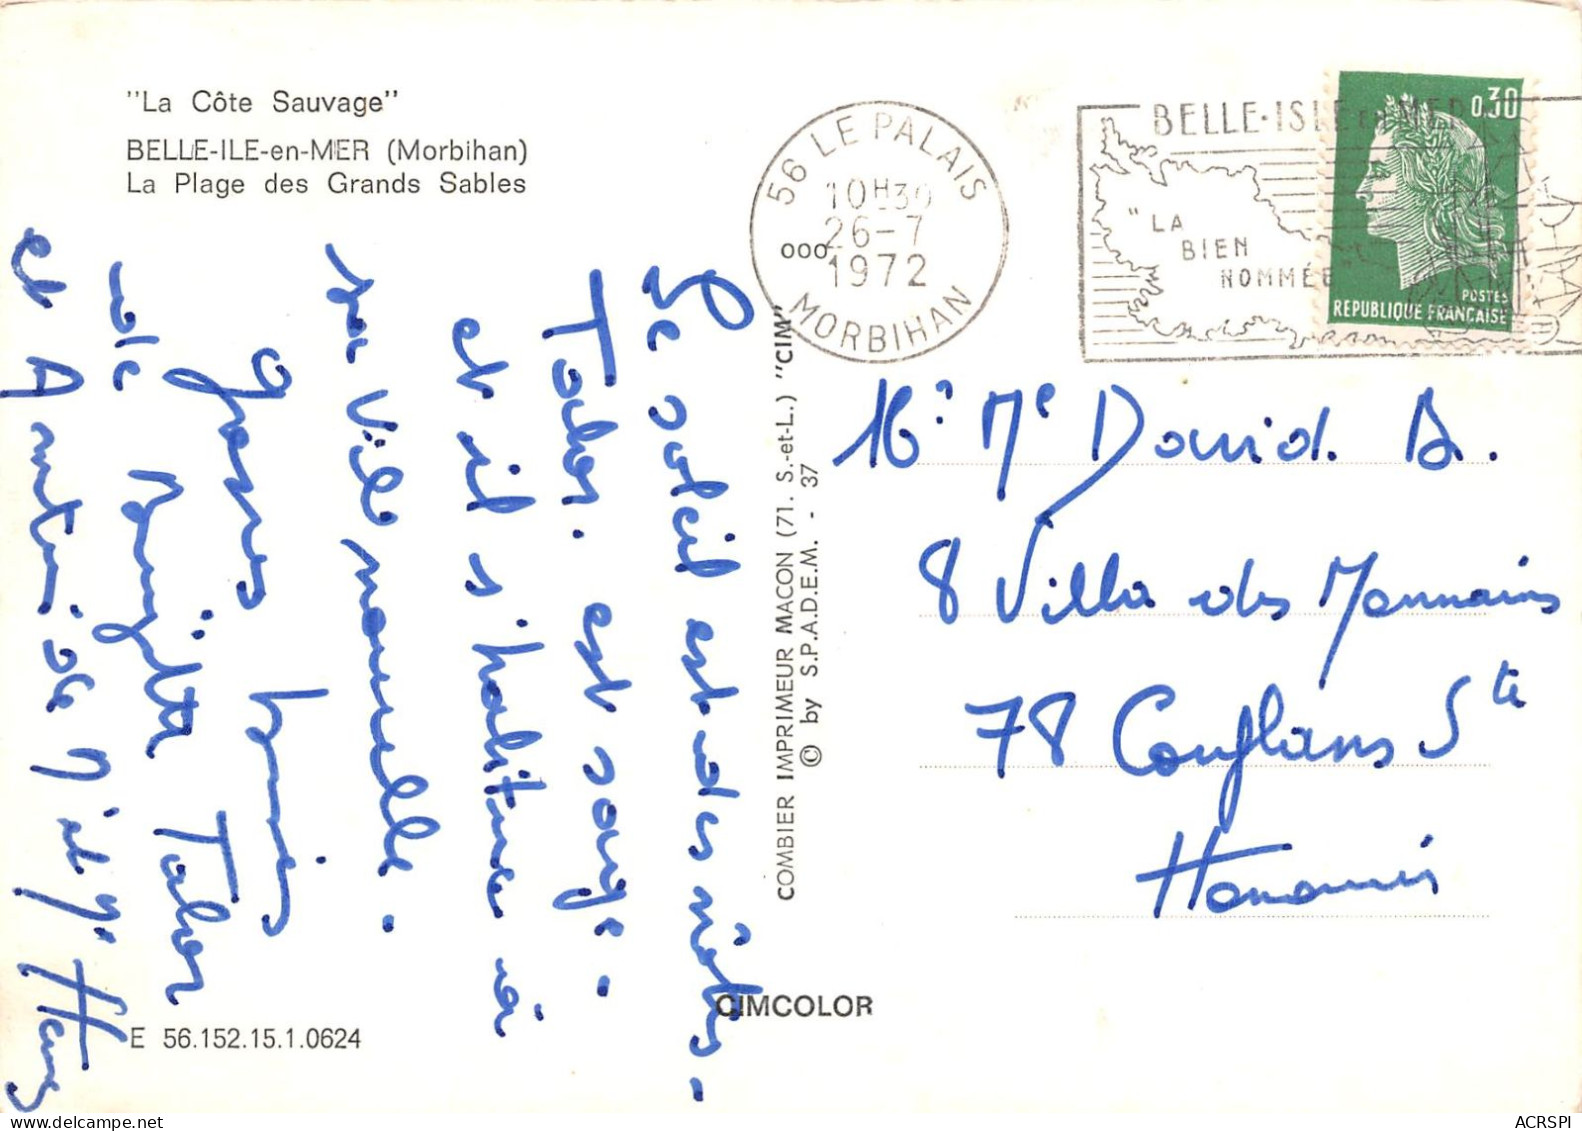 "La Côte Sauvage"
BELLE-ILE-en-MER (Morbihan)
La Plage des Grands Sables
56 LE PALAIS
10H30
26-7
1972
MORBIHAN
BELLE-ISLE en MER
"LA
BIEN
NOMMÉE"
0,30
POSTES
REPUBLIQUE FRANÇAISE
Le soleil est des nôtres.
Tabor. est sage.
et il s'habitue à
sa vie nouvelle.
de Tabor
et Amitié de M et Me
COMBIER IMPRIMEUR MACON (71. S.-et-L.) "CIM"
© by S.P.A.D.E.M. - 37
Mr Me David. A.
8 Villa des
78 Conflans Ste
Honorine
CIMCOLOR
E 56.152.15.1.0624
ACRSPI